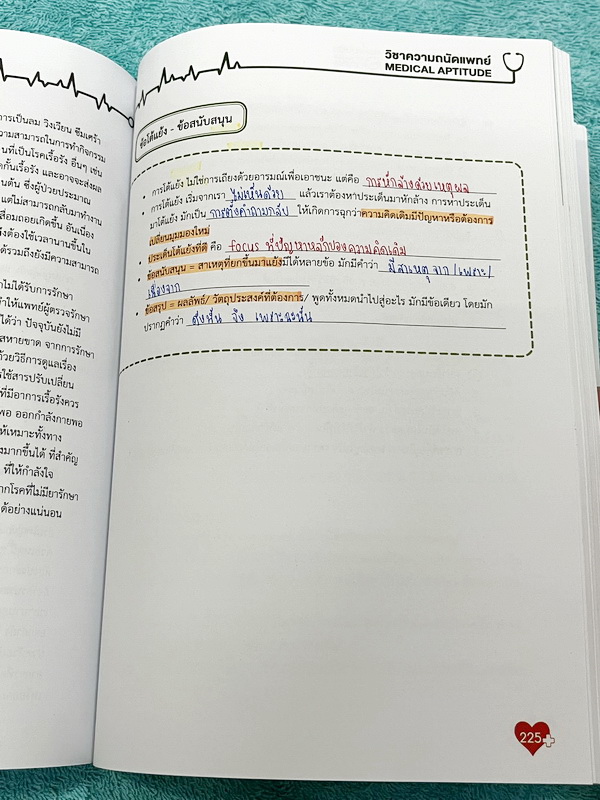 การเป็นลม วิงเวียน ซึมเศร้า
ความสามารถในการทำกิจกรรม
นที่เป็นโรคเรื้อรัง อื่นๆ เช่น
กั้นเรื้อรัง และอาจจะส่งผล
นต้น ซึ่งผู้ป่วยประมาณ
แต่ไม่สามารถกลับมาทำงาน
สื่อมถอยเกิดขึ้น อันเนื่อง
ังต้องใช้เวลานานขึ้นใน
ด้รวมถึงยังมีความสามารถ
ไม่ได้รับการรักษา
ทำให้แพทย์ผู้ตรวจรักษา
ได้ว่า ปัจจุบันยังไม่มี
สหายขาด จากการรักษา
ด้วยวิธีการดูแลเรื่อง
รใช้สารปรับเปลี่ยน
ที่มีอาการเรื้อรังควร
พอ ออกกำลังกายพอ
ให้เหมาะทั้งทาง
งมากขึ้นได้ ที่สำคัญ
ที่ให้กำลังใจ
ากโรคที่ไม่มียารักษา
ด้อย่างแน่นอน
วิชาความถนัดแพทย์
MEDICAL APTITUDE
ข้อโต้แย้ง - ข้อสนับสนุน
• การโต้แย้ง ไม่ใช่การเถียงด้วยอารมณ์เพื่อเอาชนะ แต่คือ การหักล้างด้วยเหตุผล
• การโต้แย้ง เริ่มจากเรา ไม่เห็นด้วย แล้วเราต้องหาประเด็นมาหักล้าง การหาประเด็น
มาโต้แย้ง มักเป็น การตั้งคำถามกลับ ให้เกิดการฉุกว่าความคิดเดิมมีปัญหาหรือต้องการ
เปลี่ยนมุมมองใหม่
• ประเด็นโต้แย้งที่ดี คือ focus ที่ปัญหาหลักของความคิดเดิม
• ข้อสนับสนุน = สาเหตุที่ยกขึ้นมาแย้งมีได้หลายข้อ มักมีคำว่า มีสาเหตุจาก / เพราะ /
เนื่องจาก
• ข้อสรุป = ผลลัพธ์/ วัตถุประสงค์ที่ต้องการ/ พูดทั้งหมดนำไปสู่อะไร มักมีข้อเดียว โดยมัก
ปรากฏคำว่า ดังนั้น จึง เพราะฉะนั้น
225